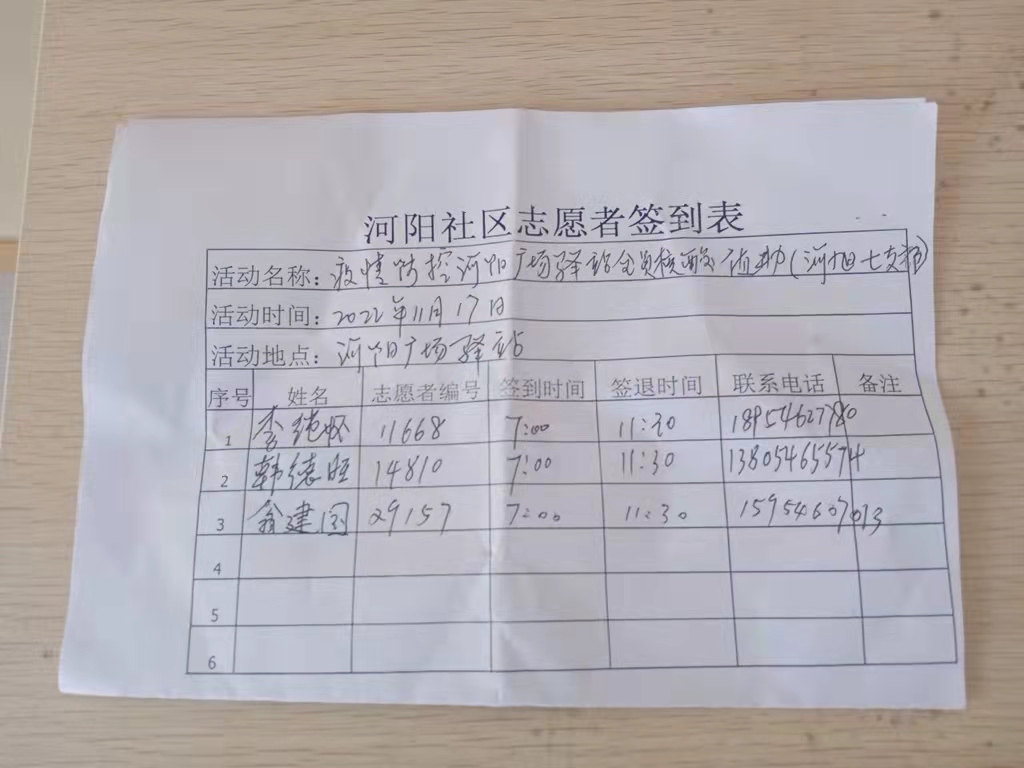 河阳社区志愿者签到表
活动名称：疫情防控河阳广场驿站全员核酸值勤（河旭七支部）
活动时间：2022年11月17日
活动地点：河阳广场驿站
序号 姓名 志愿者编号 签到时间 签退时间 联系电话 备注
1 李纯怀 11668 7:00 11:30 18954627780
2 韩德旺 14810 7:00 11:30 13805465574
3 翁建国 29157 7:00 11:30 15954607013
4
5
6